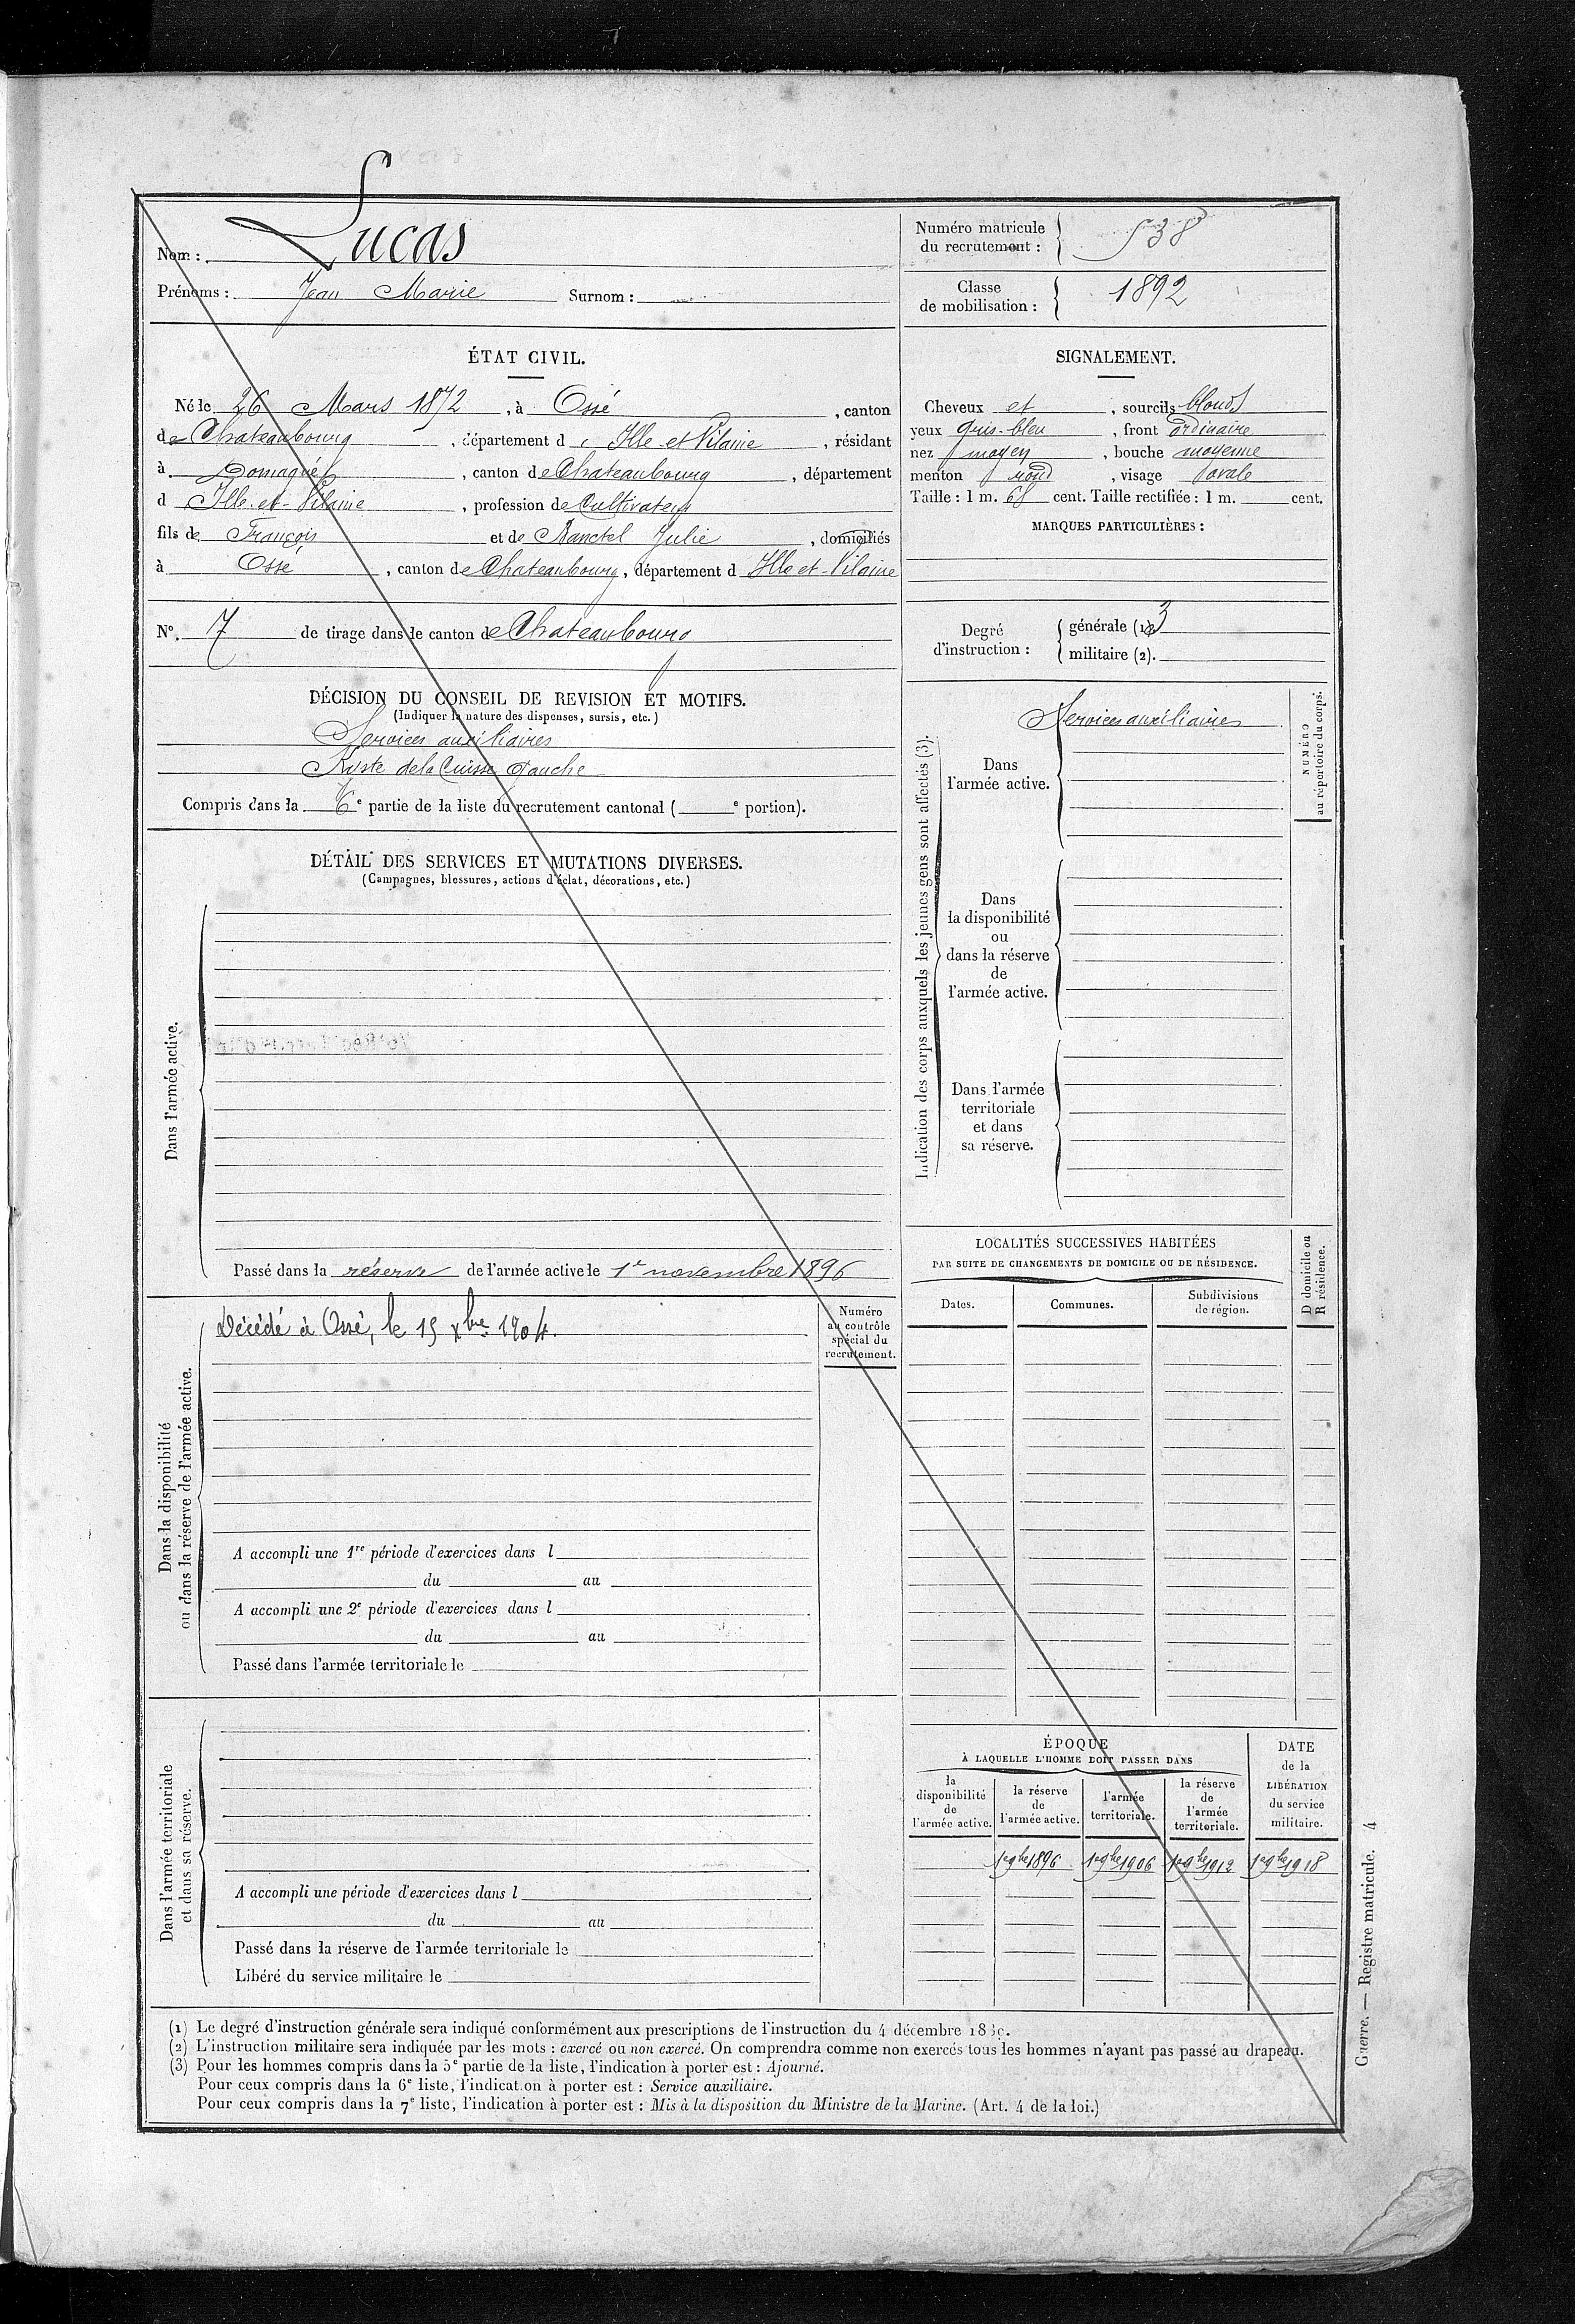 Nom : Lucas
Prénoms : Jean Marie Surnom :
Numéro matricule du recrutement : 538
Classe de mobilisation : 1892
ÉTAT CIVIL.
Né le 26 Mars 1872, à Ossé, canton
de Chateaubourg, département d'Ille-et-Vilaine, résidant
à Domagné, canton de Chateaubourg, département
d Ille-et-Vilaine, profession de Cultivateur
fils de François et de Nanctel Julie, domiciliés
à Ossé, canton de Chateaubourg, département d Ille-et-Vilaine
N°. 7 de tirage dans le canton de Chateaubourg
SIGNALEMENT.
Cheveux et, sourcils blonds
yeux gris-bleu, front ordinaire
nez moyen, bouche moyenne
menton rond, visage ovale
Taille : 1 m. cent. Taille rectifiée : 1 m. cent.
MARQUES PARTICULIÈRES :
Degré d'instruction :
générale (1) 3
militaire (2).
DÉCISION DU CONSEIL DE REVISION ET MOTIFS.
(Indiquer la nature des dispenses, sursis, etc.)
Services auxiliaires
Kyste de la Cuisse gauche
Compris dans la 6e partie de la liste du recrutement cantonal ( e portion).
DÉTAIL DES SERVICES ET MUTATIONS DIVERSES.
(Campagnes, blessures, actions d'éclat, décorations, etc.)
Dans l'armée active.
Passé dans la réserve de l'armée active le 1er novembre 1896
Indication des corps auxquels les jeunes gens sont affectés (3).
NUMÉRO au répertoire du corps.
Services auxiliaires
Dans
l'armée active.
Dans
la disponibilité
ou
dans la réserve
de
l'armée active.
Dans l'armée
territoriale
et dans
sa réserve.
Dans la disponibilité
ou dans la réserve de l'armée active.
Décédé à Ossé, le 15 xbre 1904.
Numéro
au contrôle
spécial du
recrutement.
A accompli une 1re période d'exercices dans l
du au
A accompli une 2e période d'exercices dans l
du au
Passé dans l'armée territoriale le
LOCALITÉS SUCCESSIVES HABITÉES
PAR SUITE DE CHANGEMENTS DE DOMICILE OU DE RÉSIDENCE.
Dates.
Communes.
Subdivisions
de région.
D domicile ou
R résidence.
Dans l'armée territoriale
et dans sa réserve.
A accompli une période d'exercices dans l
du au
Passé dans la réserve de l'armée territoriale le
Libéré du service militaire le
ÉPOQUE
À LAQUELLE L'HOMME DOIT PASSER DANS
la
disponibilité
de
l'armée active.
la réserve
de
l'armée active.
l'armée
territoriale.
la réserve
de
l'armée
territoriale.
DATE
de la
LIBÉRATION
du service
militaire.
1er 9bre 1896 1er 9bre 1906 1er 9bre 1912 1er 9bre 1918
(1) Le degré d'instruction générale sera indiqué conformément aux prescriptions de l'instruction du 4 décembre
(2) L'instruction militaire sera indiquée par les mots : exercé ou non exercé. On comprendra comme non exercés tous les hommes n'ayant pas passé au drapeau.
(3) Pour les hommes compris dans la 5e partie de la liste, l'indication à porter est : Ajourné.
Pour ceux compris dans la 6e liste, l'indication à porter est : Service auxiliaire.
Pour ceux compris dans la 7e liste, l'indication à porter est : Mis à la disposition du Ministre de la Marine. (Art. 4 de la loi.)
Guerre. — Registre matricule. 4